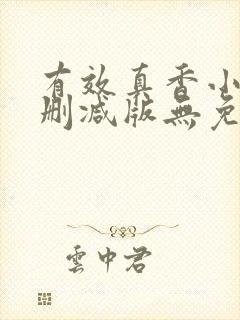 有效真香小
删减版無免
雲中君